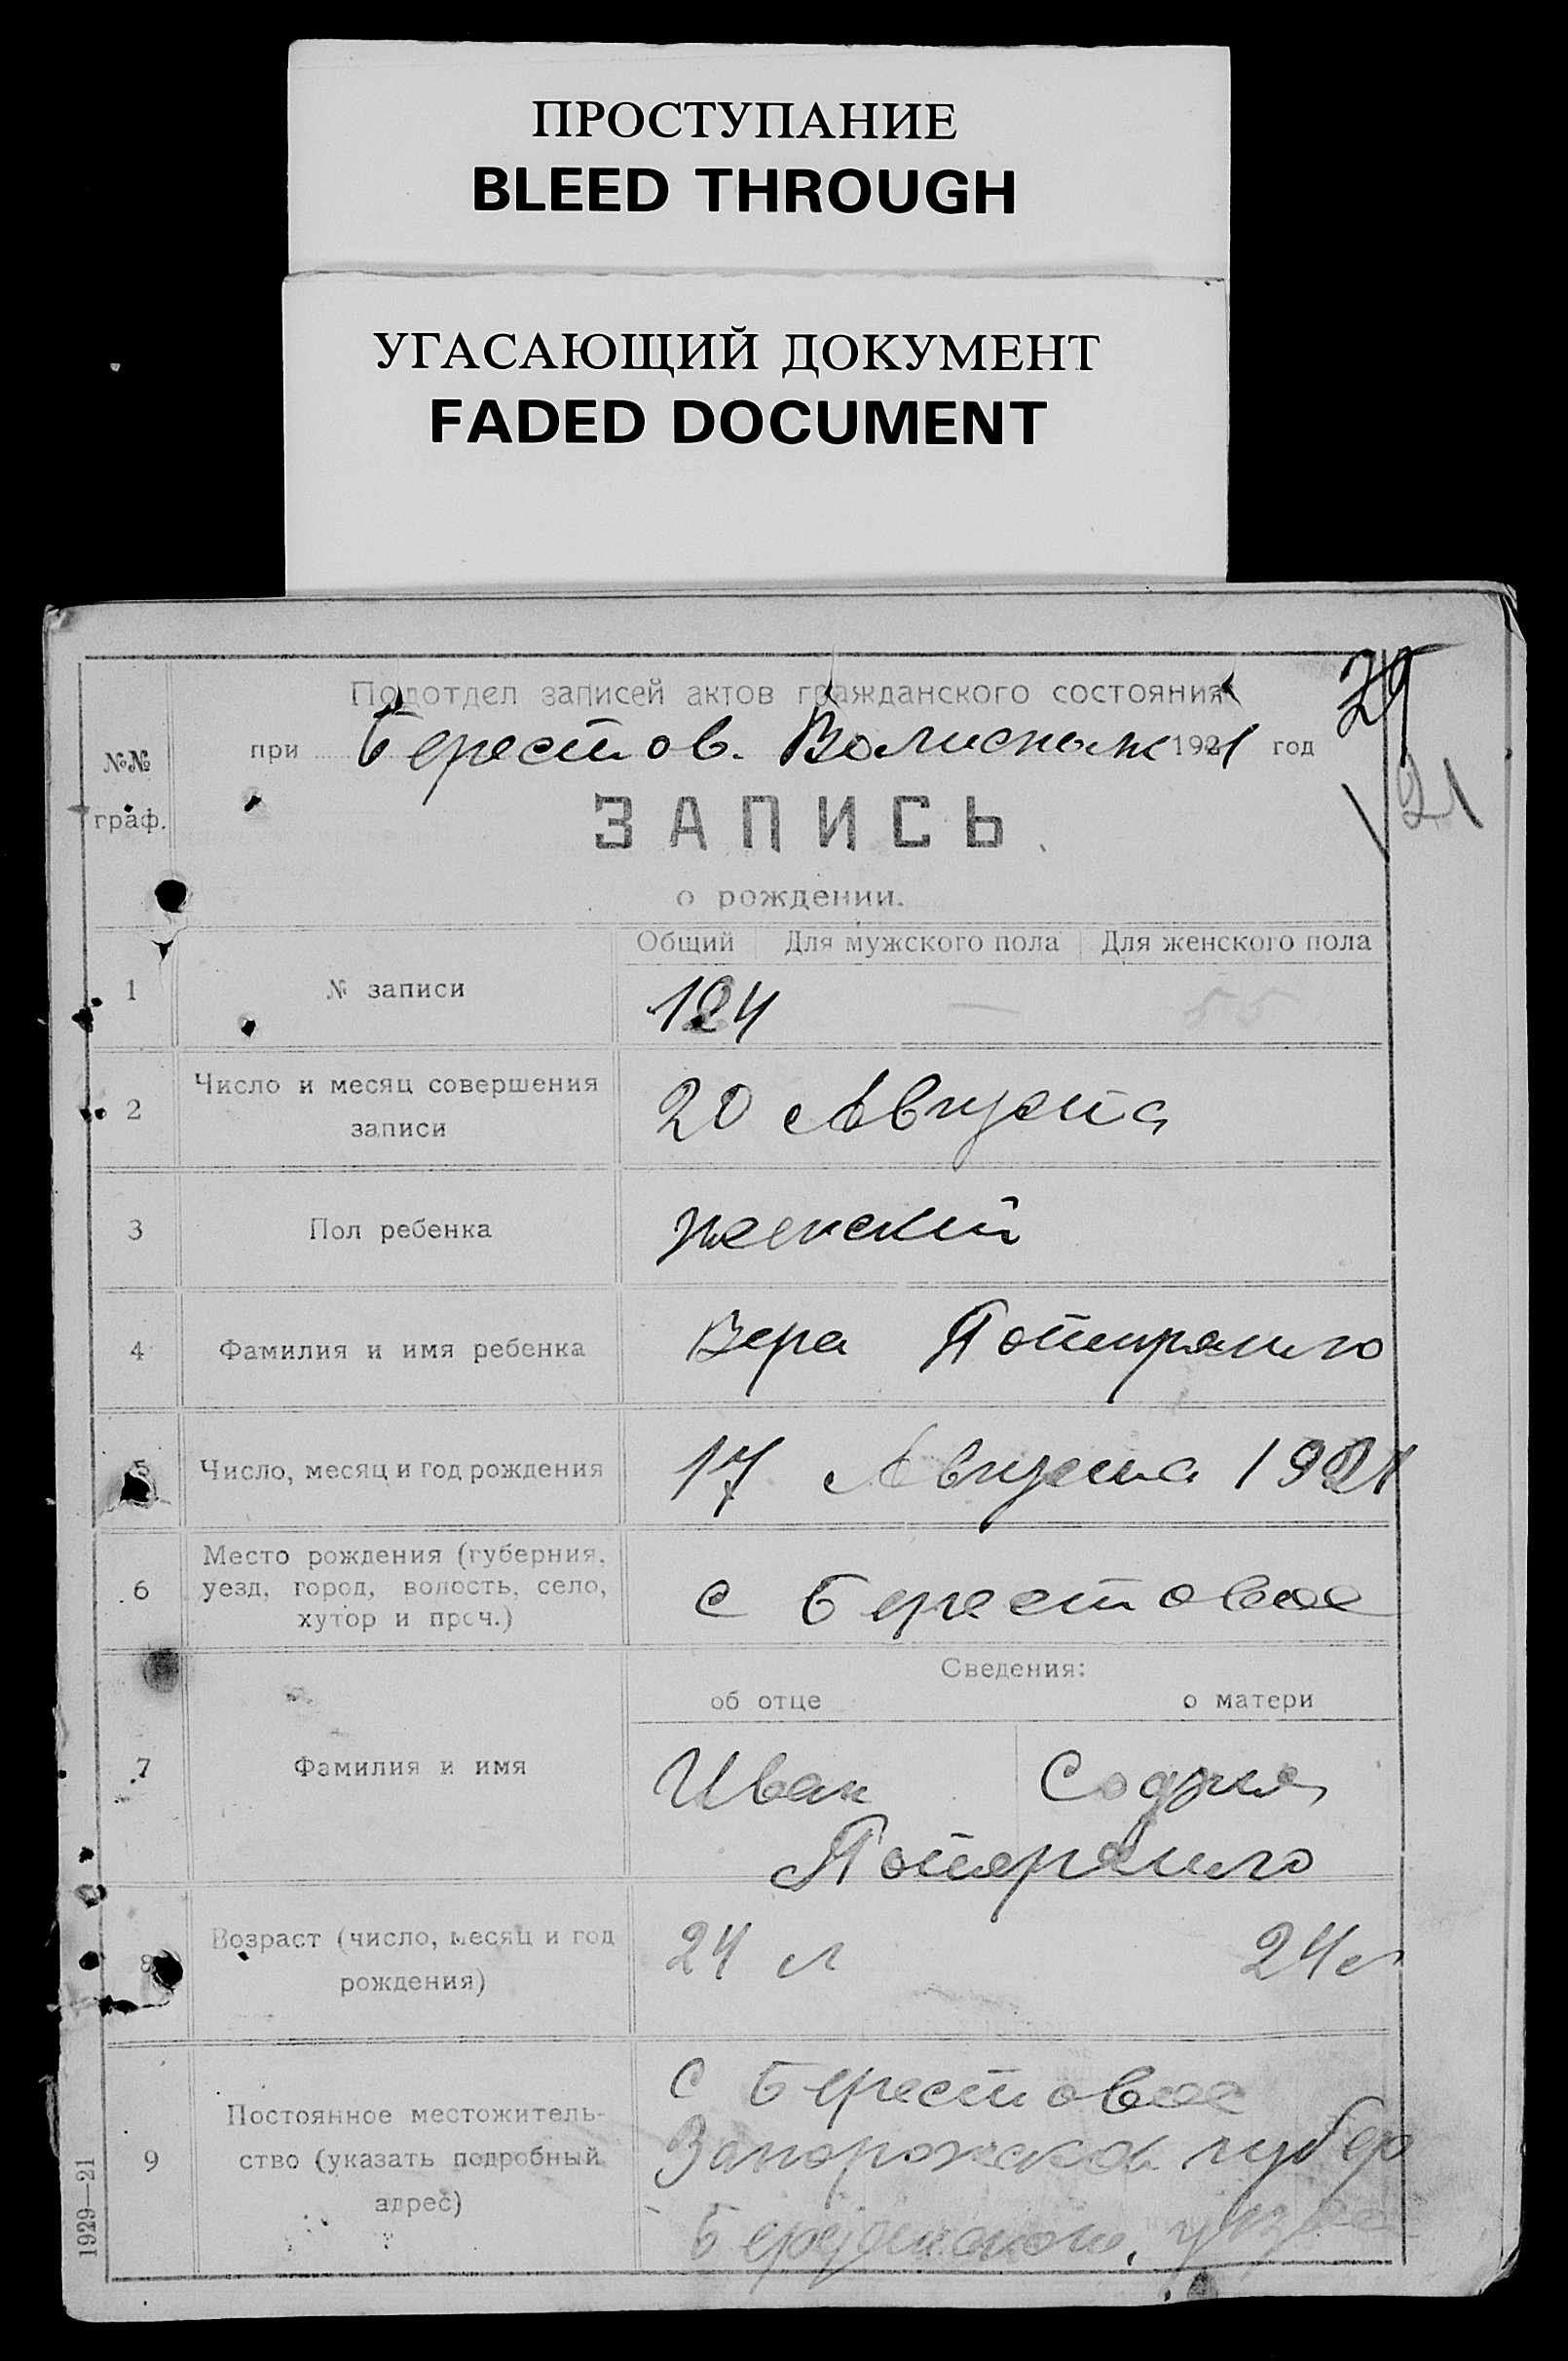 ПРОСТУПАНИЕ
BLEED THROUGH
УГАСАЮЩИЙ ДОКУМЕНТ
FADED DOCUMENT
Подотдел записей актов гражданского состояния
29
при Берестов. Волисполк 1921 год
21
№№
граф.
ЗАПИСЬ
о рождении.
Общий Для мужского пола Для женского пола
1 № записи 124 — 55
2 Число и месяц совершения
записи
20 Августа
3 Пол ребенка женский
4 Фамилия и имя ребенка Вера
5 Число, месяц и год рождения 17 Августа 1921
6 Место рождения (губерния,
уезд, город, волость, село,
хутор и проч.)
с Берестовое
Сведения:
об отце о матери
7 Фамилия и имя
Иван София
8 Возраст (число, месяц и год
рождения)
24 л 24 л
9 Постоянное местожитель-
ство (указать подробный
адрес)
с Берестовое
Запорожской губер
1929—21